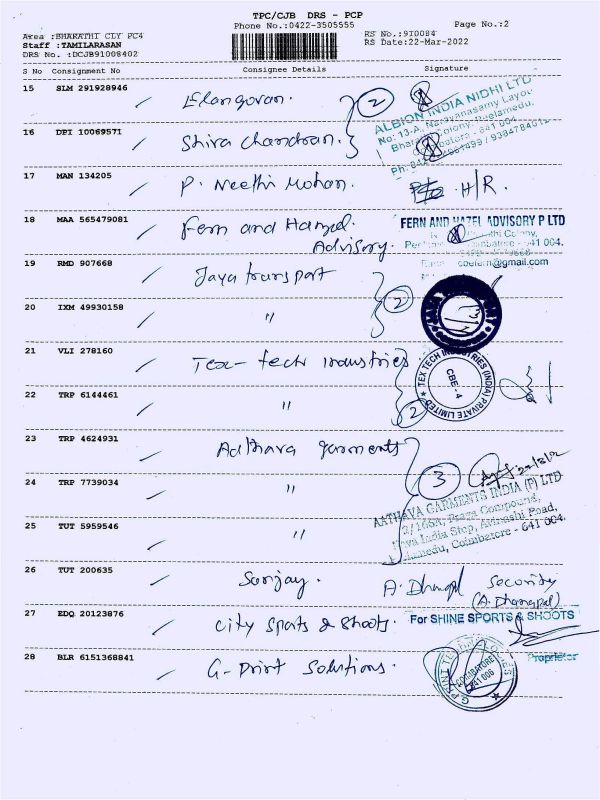 TPC/CJB DRS - PCP
Phone No.:0422-3505555
Page No.:2
Area :BHARATHI CLY PC4
RS No.:9I0084
Staff :TAMILARASAN
RS Date:22-Mar-2022
DRS No. :DCJB91008402
S No Consignment No Consignee Details Signature
15 SLM 291928946 Elangovan. 2
ALBION INDIA NIDHI LTD
No: 13-A, Narayanasamy Layout
16 DPI 10069571 Shiva Chandran.
17 MAN 134205 P. Neethi Mohan. H/R.
18 MAA 565479081 Fern and Hazel Advisory.
FERN AND HAZEL ADVISORY P LTD
19 RMD 907668 Jaya transport 2
20 IXM 49930158 "
21 VLI 278160 Tex-tech industries
TEX TECH INDUSTRIES (INDIA) PRIVATE LIMITED
CBE - 4
22 TRP 6144461 " 2
23 TRP 4624931 Aathava garments 3
24 TRP 7739034 "
AATHAVA GARMENTS INDIA (P) LTD
2/166A, Plaza Compound,
Nava India Stop, Avinashi Road,
Coimbatore - 641 004.
25 TUT 5959546 "
26 TUT 200635 Sanjay. Security
(A. Dhanapal)
27 EDQ 20123876 City Sports & Shoots.
For SHINE SPORTS & SHOOTS
Proprietor
28 BLR 6151368841 G-Print Solutions.
COIMBATORE
641 006